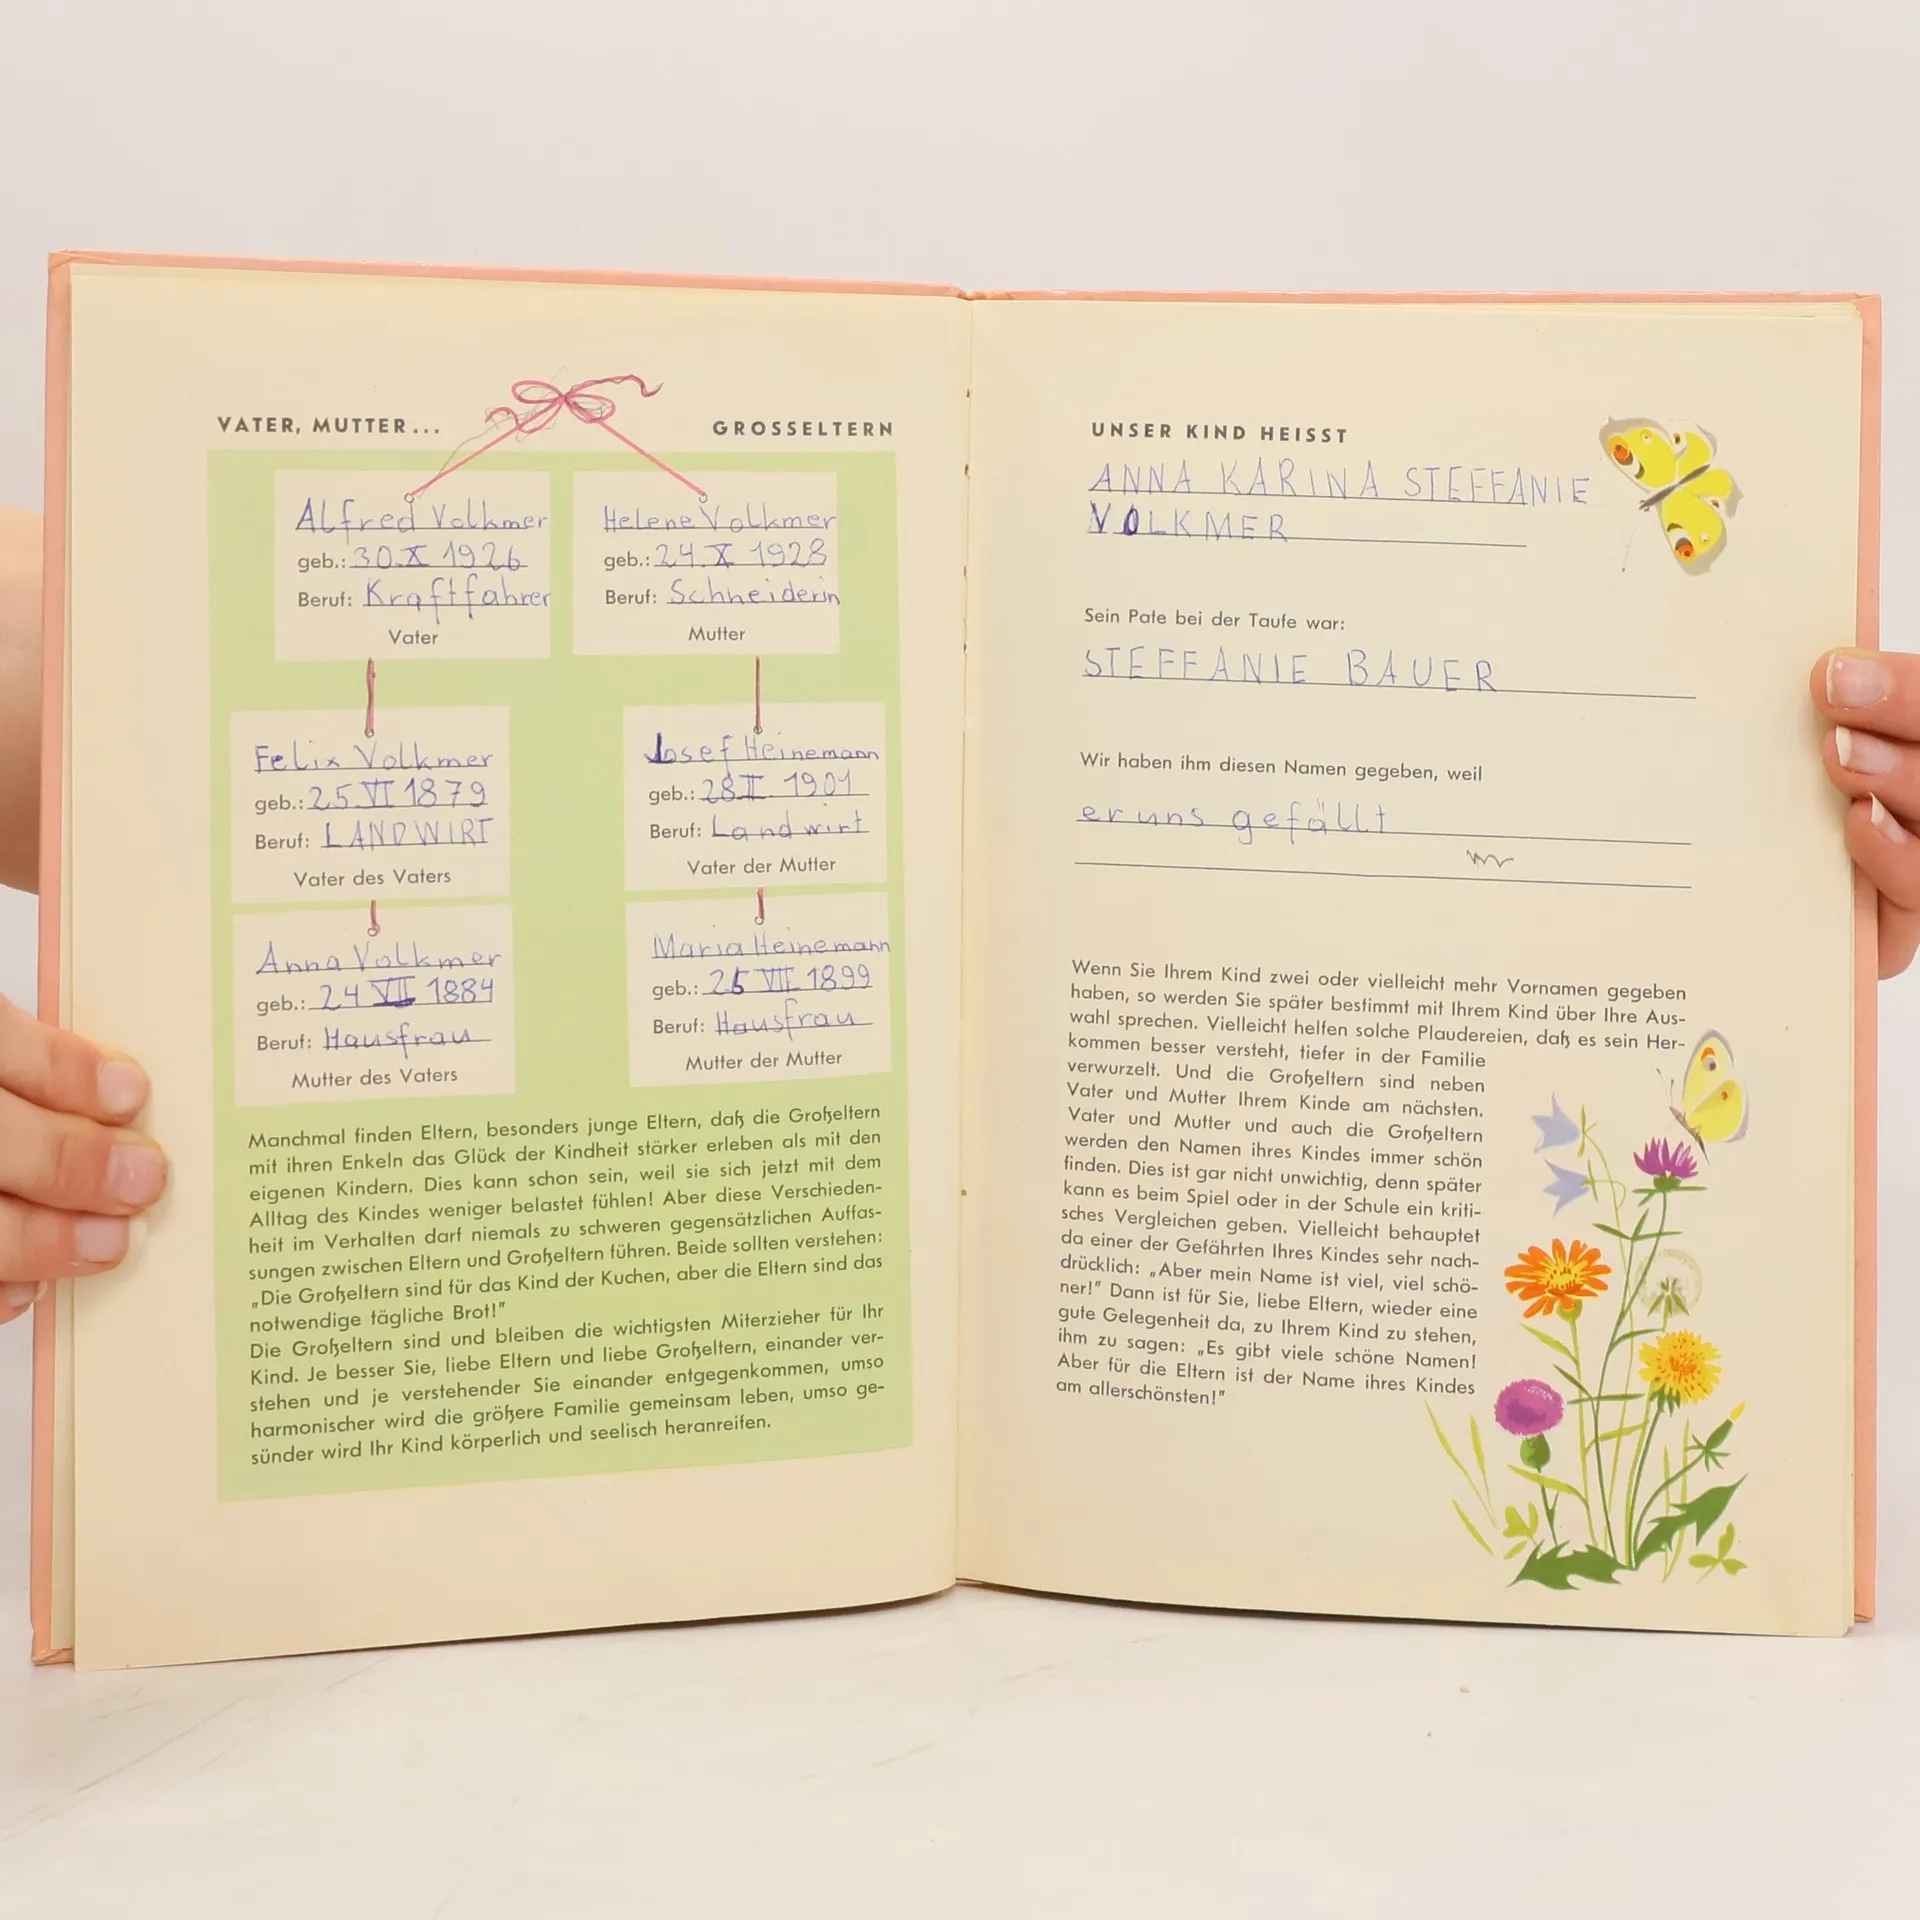 VATER, MUTTER...
GROSSELTERN
Alfred Volkmer
geb.: 30.X 1926
Beruf: Kraftfahrer
Vater
Helene Volkmer
geb.: 24.X 1928
Beruf: Schneiderin
Mutter
Felix Volkmer
geb.: 25.VI 1879
Beruf: LANDWIRT
Vater des Vaters
Josef Heinemann
geb.: 28.II. 1901
Beruf: Landwirt
Vater der Mutter
Anna Volkmer
geb.: 24 VII 1884
Beruf: Hausfrau
Mutter des Vaters
Maria Heinemann
geb.: 26 VII 1899
Beruf: Hausfrau
Mutter der Mutter
Manchmal finden Eltern, besonders junge Eltern, daß die Großeltern
mit ihren Enkeln das Glück der Kindheit stärker erleben als mit den
eigenen Kindern. Dies kann schon sein, weil sie sich jetzt mit dem
Alltag des Kindes weniger belastet fühlen! Aber diese Verschieden-
heit im Verhalten darf niemals zu schweren gegensätzlichen Auffas-
sungen zwischen Eltern und Großeltern führen. Beide sollten verstehen:
„Die Großeltern sind für das Kind der Kuchen, aber die Eltern sind das
notwendige tägliche Brot!"
Die Großeltern sind und bleiben die wichtigsten Miterzieher für Ihr
Kind. Je besser Sie, liebe Eltern und liebe Großeltern, einander ver-
stehen und je verstehender Sie einander entgegenkommen, umso
harmonischer wird die größere Familie gemeinsam leben, umso ge-
sünder wird Ihr Kind körperlich und seelisch heranreifen.
UNSER KIND HEISST
ANNA KARINA STEFFANIE
VOLKMER
Sein Pate bei der Taufe war:
STEFFANIE BAUER
Wir haben ihm diesen Namen gegeben, weil
er uns gefällt
Wenn Sie Ihrem Kind zwei oder vielleicht mehr Vornamen gegeben
haben, so werden Sie später bestimmt mit Ihrem Kind über Ihre Aus-
wahl sprechen. Vielleicht helfen solche Plaudereien, daß es sein Her-
kommen besser versteht, tiefer in der Familie
verwurzelt. Und die Großeltern sind neben
Vater und Mutter Ihrem Kinde am nächsten.
Vater und Mutter und auch die Großeltern
werden den Namen ihres Kindes immer schön
finden. Dies ist gar nicht unwichtig, denn später
kann es beim Spiel oder in der Schule ein kriti-
sches Vergleichen geben. Vielleicht behauptet
da einer der Gefährten Ihres Kindes sehr nach-
drücklich: „Aber mein Name ist viel, viel schö-
ner!" Dann ist für Sie, liebe Eltern, wieder eine
gute Gelegenheit da, zu Ihrem Kind zu stehen,
ihm zu sagen: „Es gibt viele schöne Namen!
Aber für die Eltern ist der Name ihres Kindes
am allerschönsten!"